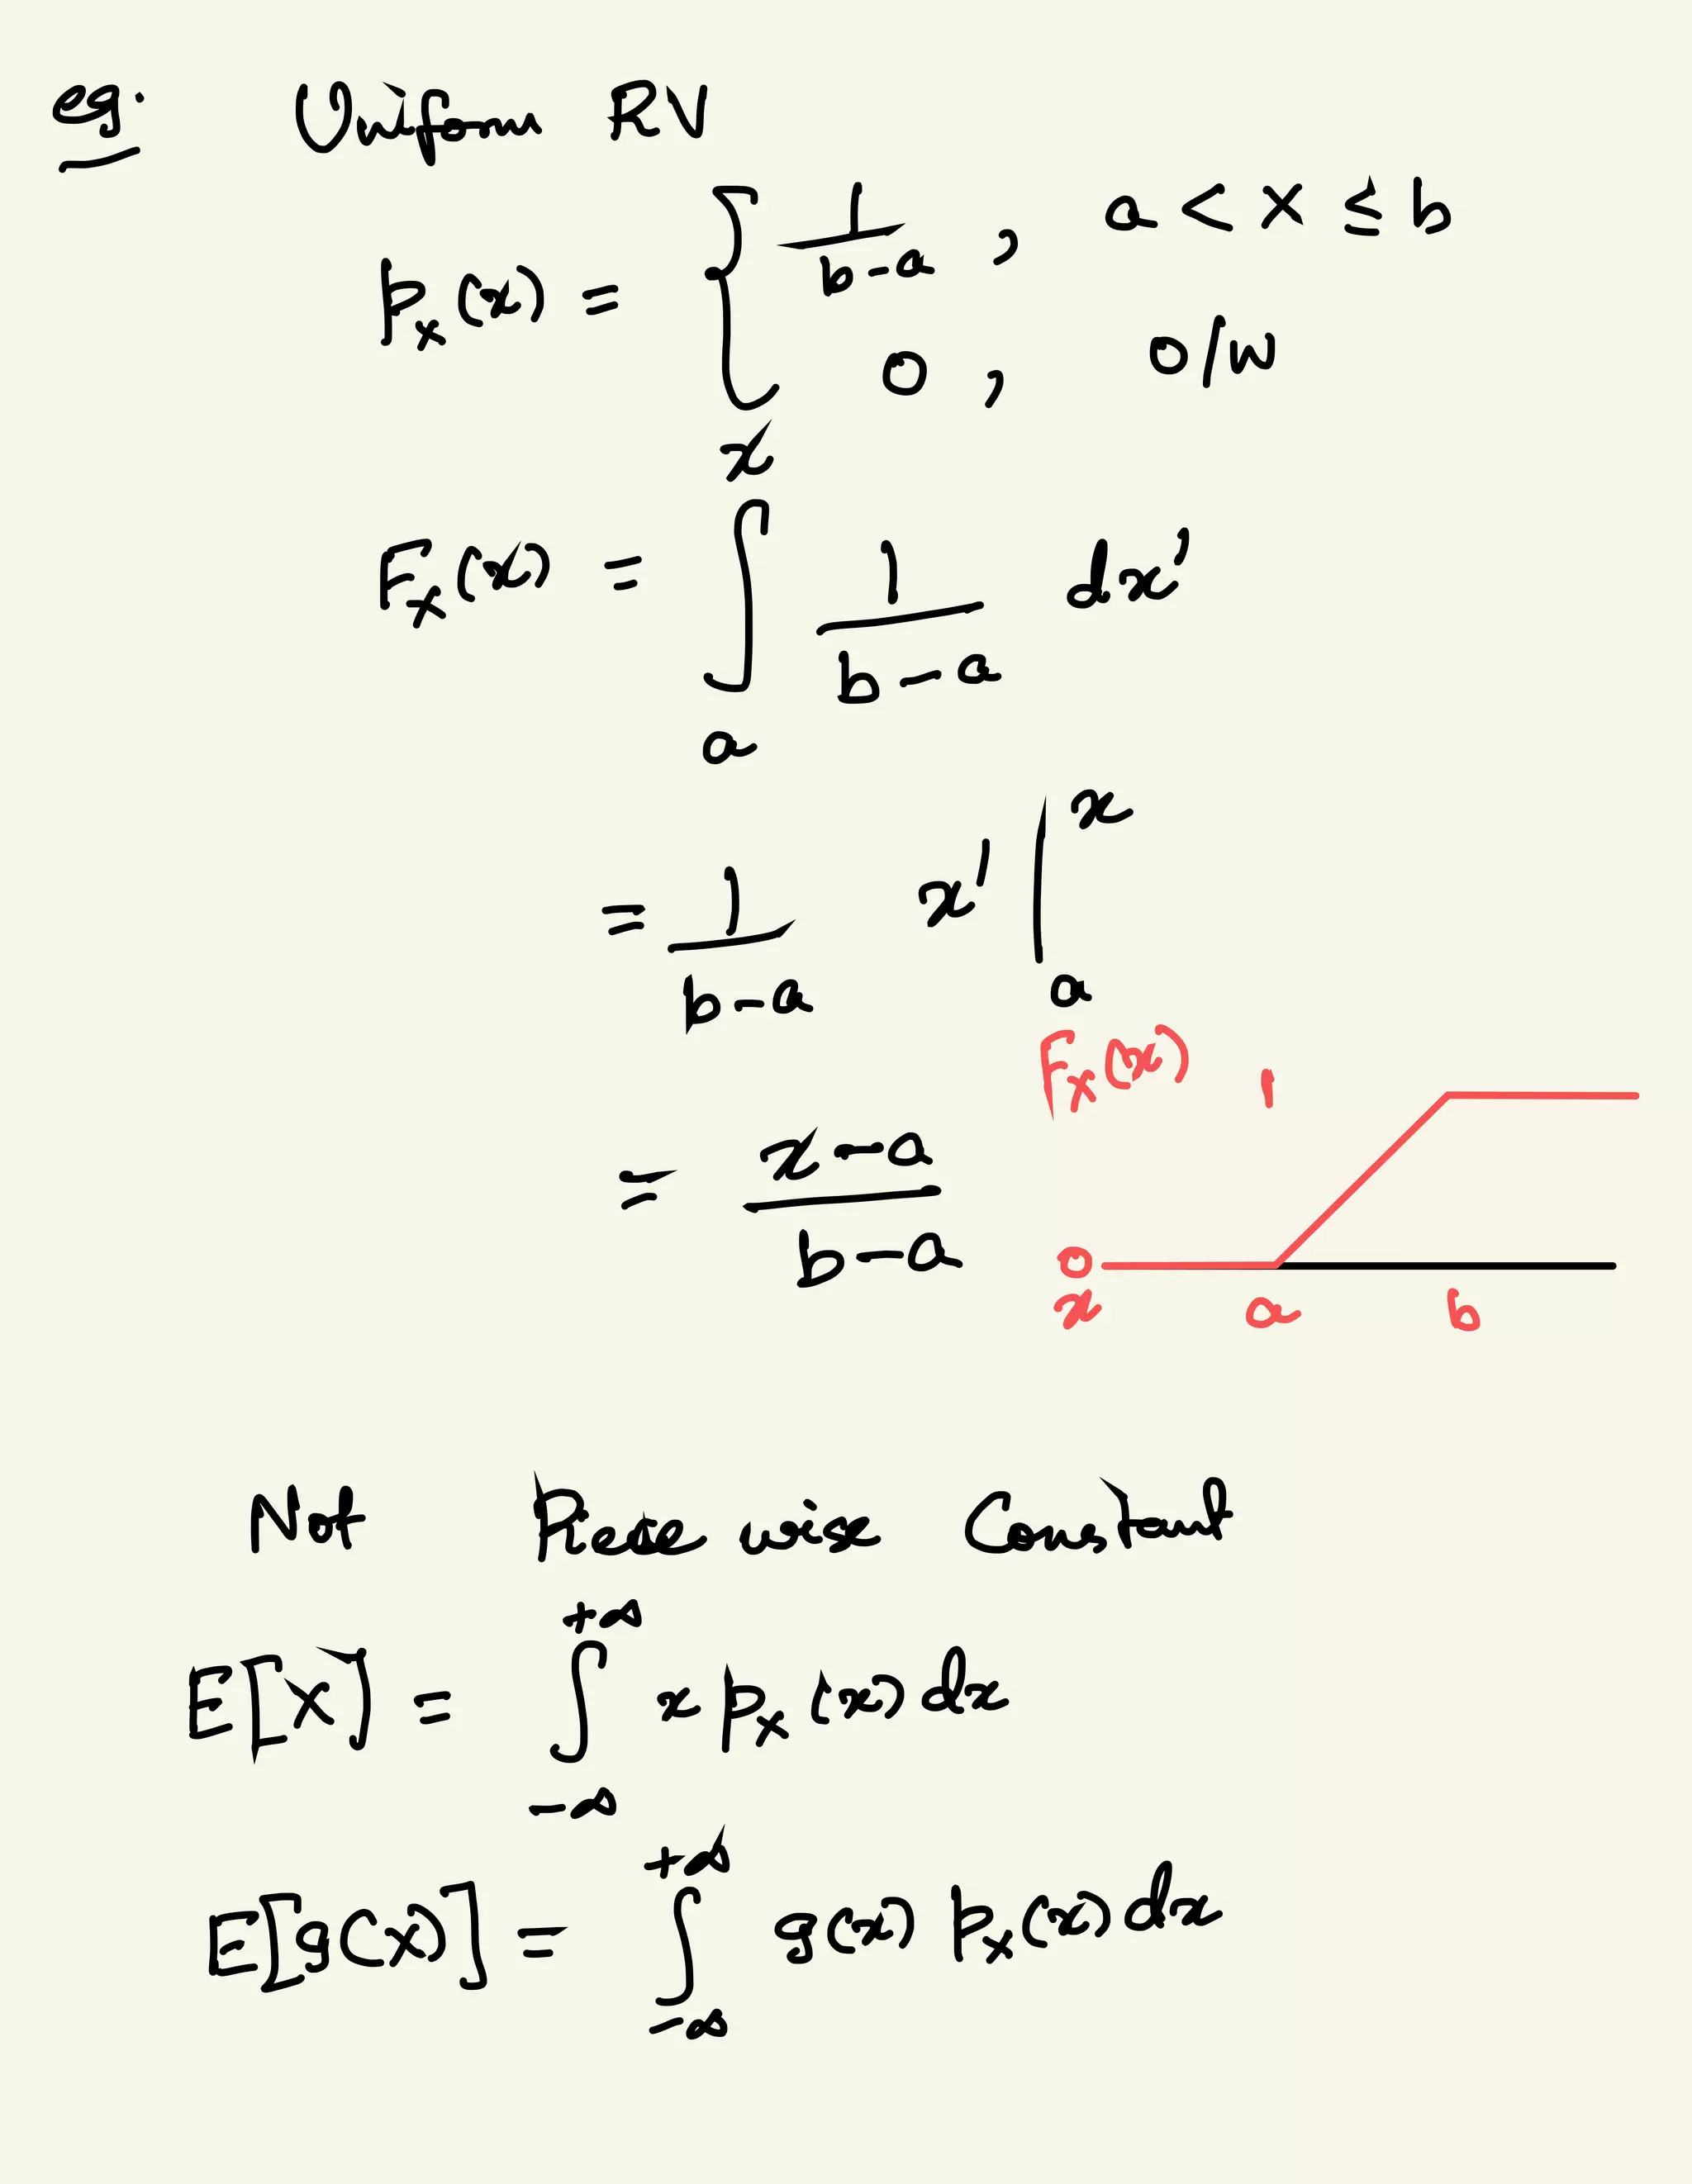 eg: Uniform RV
p_X(x) = { 1/(b-a) , a < x ≤ b
0 , o/w
F_X(x) = ∫_a^x 1/(b-a) dx'
= 1/(b-a) x' |_a^x
= (x-a)/(b-a)
F_X(x) 1
0
x a b
Not Piece wise Constant
E[X] = ∫_{-∞}^{+∞} x p_X(x) dx
E[g(X)] = ∫_{-∞}^{+∞} g(x) p_X(x) dx